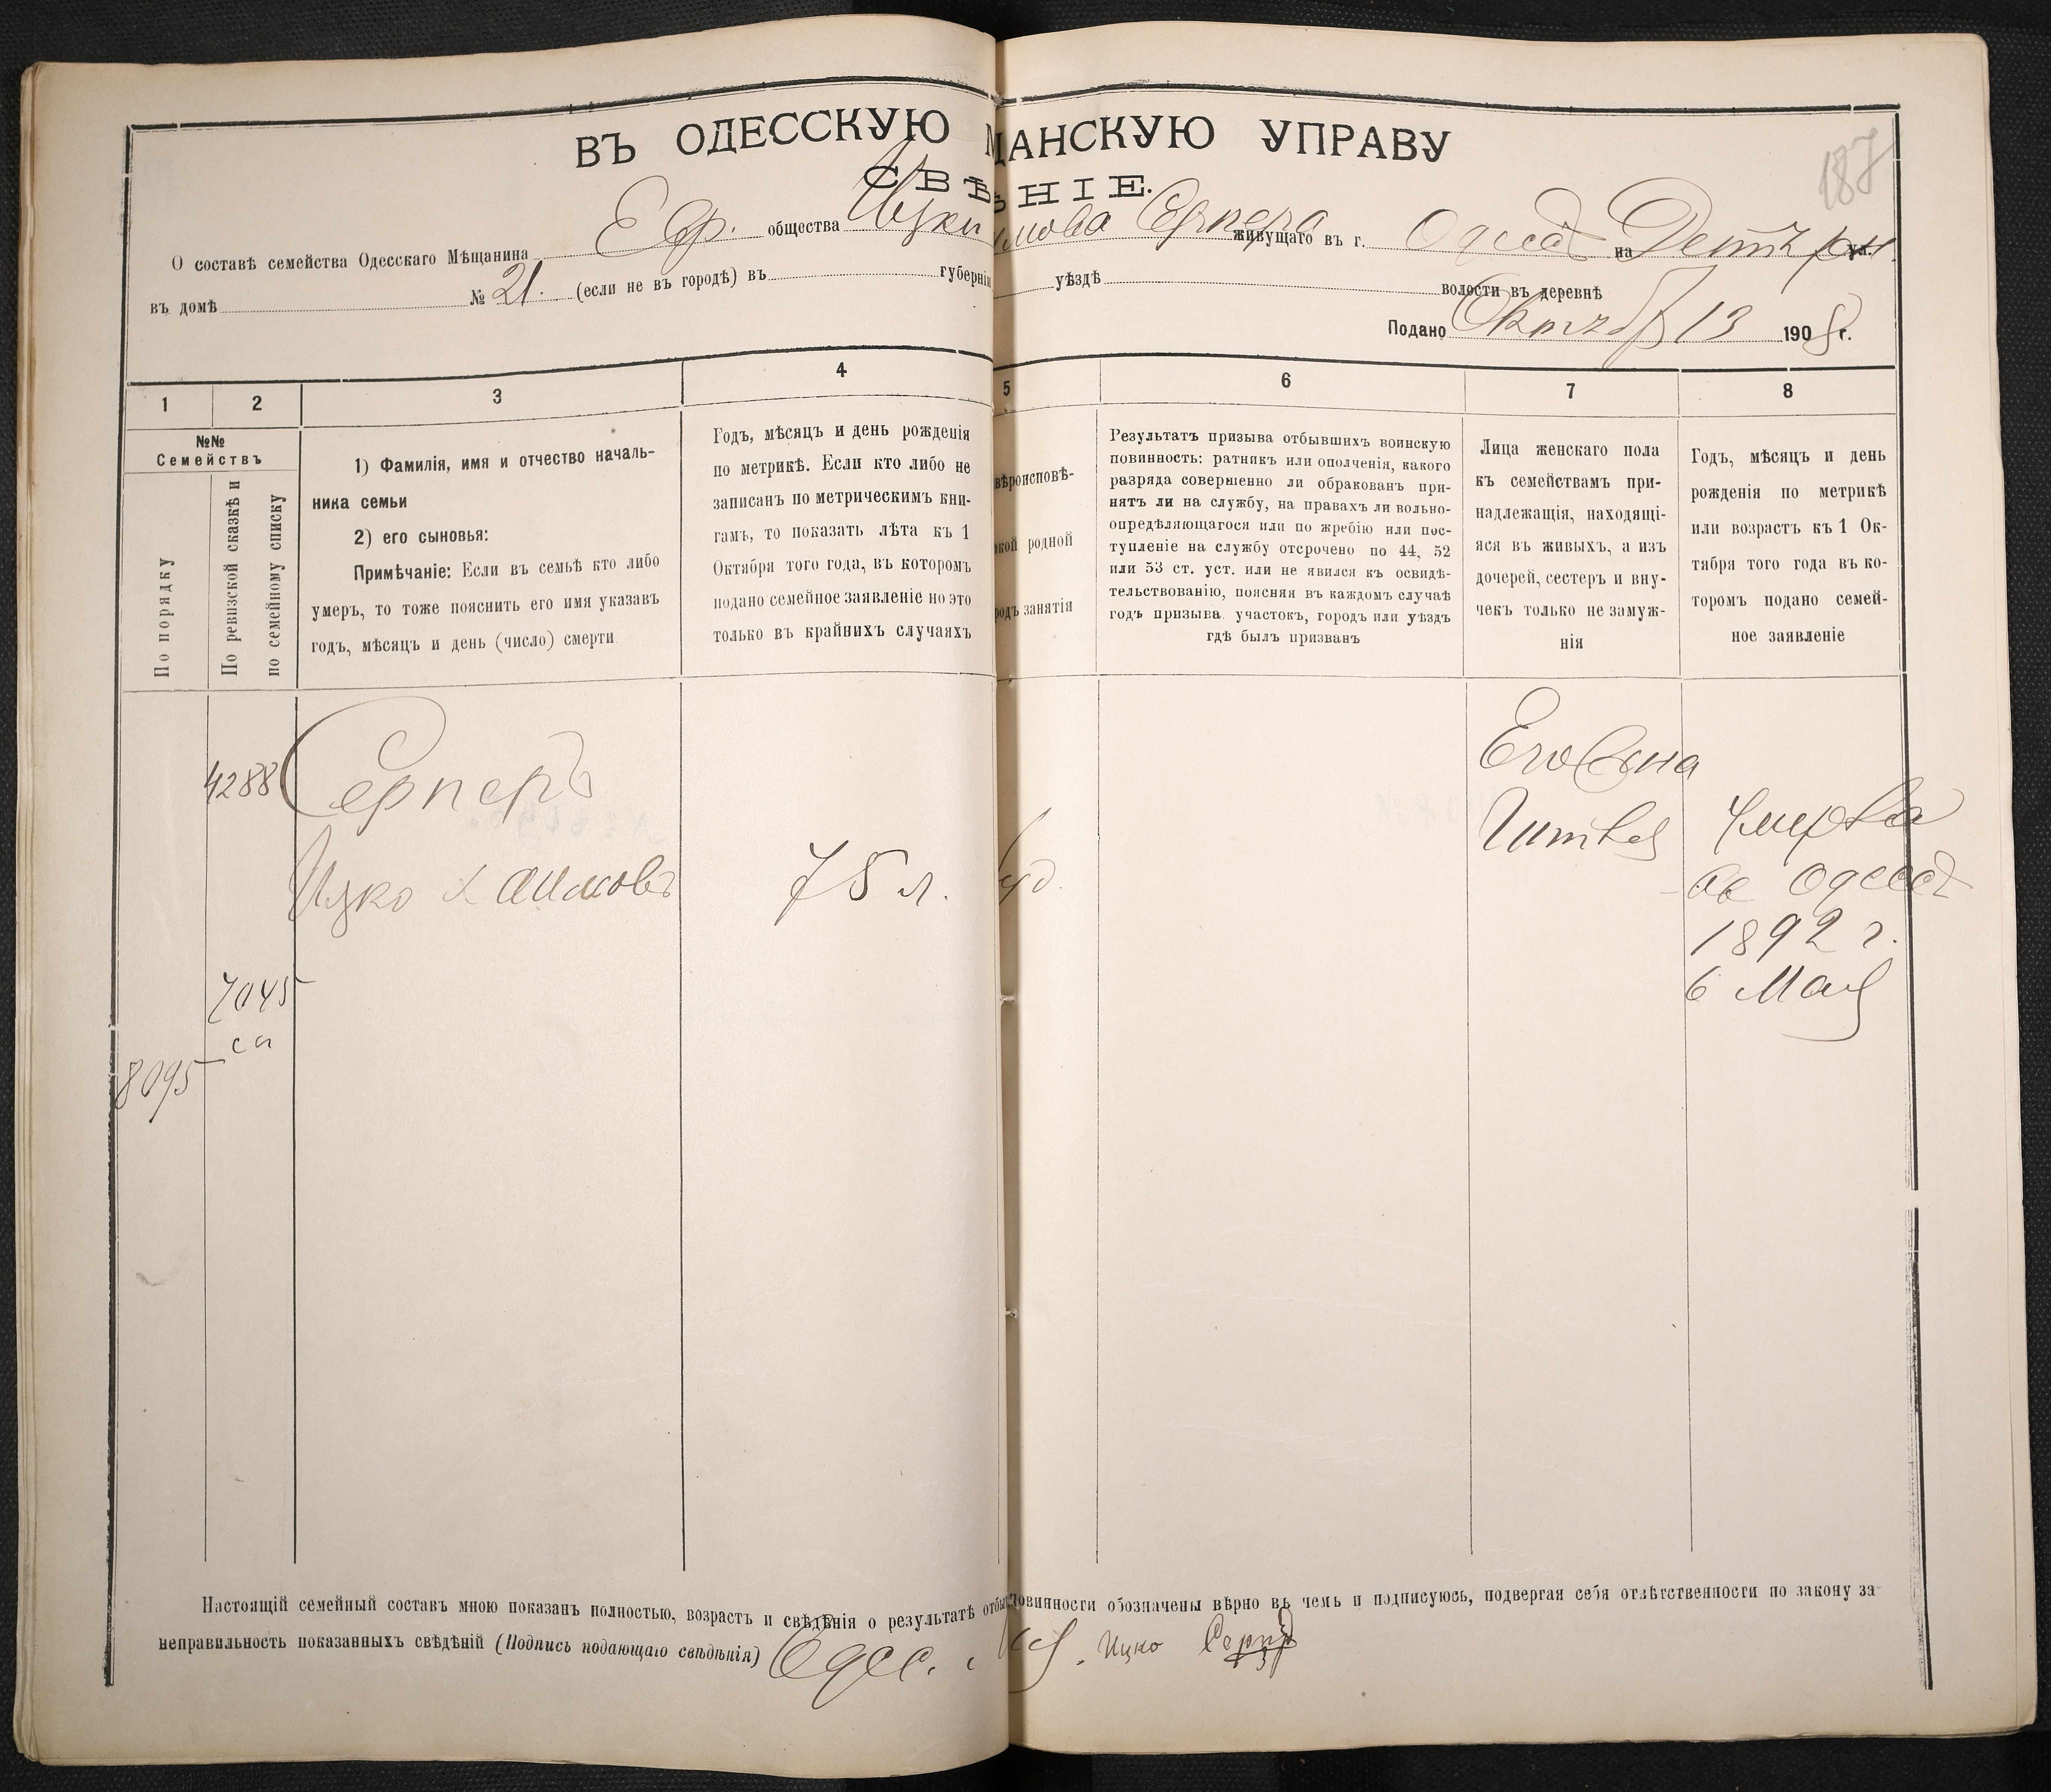 ВЪ ОДЕССКУЮ МЩАНСКУЮ УПРАВУ
187
СВѢНІЕ.
О составѣ семейства Одесскаго Мѣщанина Евр. общества Ицки Серпера живущаго въ г. Одессѣ на ул.
въ домѣ № 21. (если не въ городѣ) въ губерніи уѣздѣ волости въ деревнѣ
Подано Октяб 13 1908 г.
1 2 3 4 5 6 7 8
№№
Семействъ
По порядку
По ревизской сказкѣ и
по семейному списку
1) Фамилія, имя и отчество началь-
ника семьи
2) его сыновья:
Примѣчаніе: Если въ семьѣ кто либо
умеръ, то тоже пояснить его имя указавъ
годъ, мѣсяцъ и день (число) смерти
Годъ, мѣсяцъ и день рожденія
по метрикѣ. Если кто либо не
записанъ по метрическимъ кни-
гамъ, то показать лѣта къ 1
Октября того года, въ которомъ
подано семейное заявленіе но это
только въ крайнихъ случаяхъ
вѣроисповѣ-
родной
родъ занятія
Результатъ призыва отбывшихъ воинскую
повинность: ратникъ или ополченія, какого
разряда совершенно ли обракованъ при-
нятъ ли на службу, на правахъ ли вольно-
опредѣляющагося или по жребію или пос-
тупленіе на службу отсрочено по 44, 52
или 53 ст. уст. или не явился къ освидѣ-
тельствованію, поясняя въ каждомъ случаѣ
годъ призыва участокъ, городъ или уѣздъ
гдѣ былъ призванъ
Лица женскаго пола
къ семействамъ при-
надлежащія, находящі-
яся въ живыхъ, а изъ
дочерей, сестеръ и вну-
чекъ только не замуж-
нія
Годъ, мѣсяцъ и день
рожденія по метрикѣ
или возрастъ къ 1 Ок-
тября того года въ ко-
торомъ подано семей-
ное заявленіе
4288 Серперъ
Ицко Хаимовъ 75 л.
Его жена
Гитля
Умерла
въ Одессѣ
1892 г.
6 Мая
7045
сп
8095
Настоящій семейный составъ мною показанъ полностью, возрастъ и свѣдѣнія о результатѣ отбы повинности обозначены вѣрно въ чемъ и подписуюсь, подвергая себя отвѣтственности по закону за
неправильность показанныхъ свѣдѣній (Подпись подающаго свѣдѣнія) Одес. Ицко Серпер